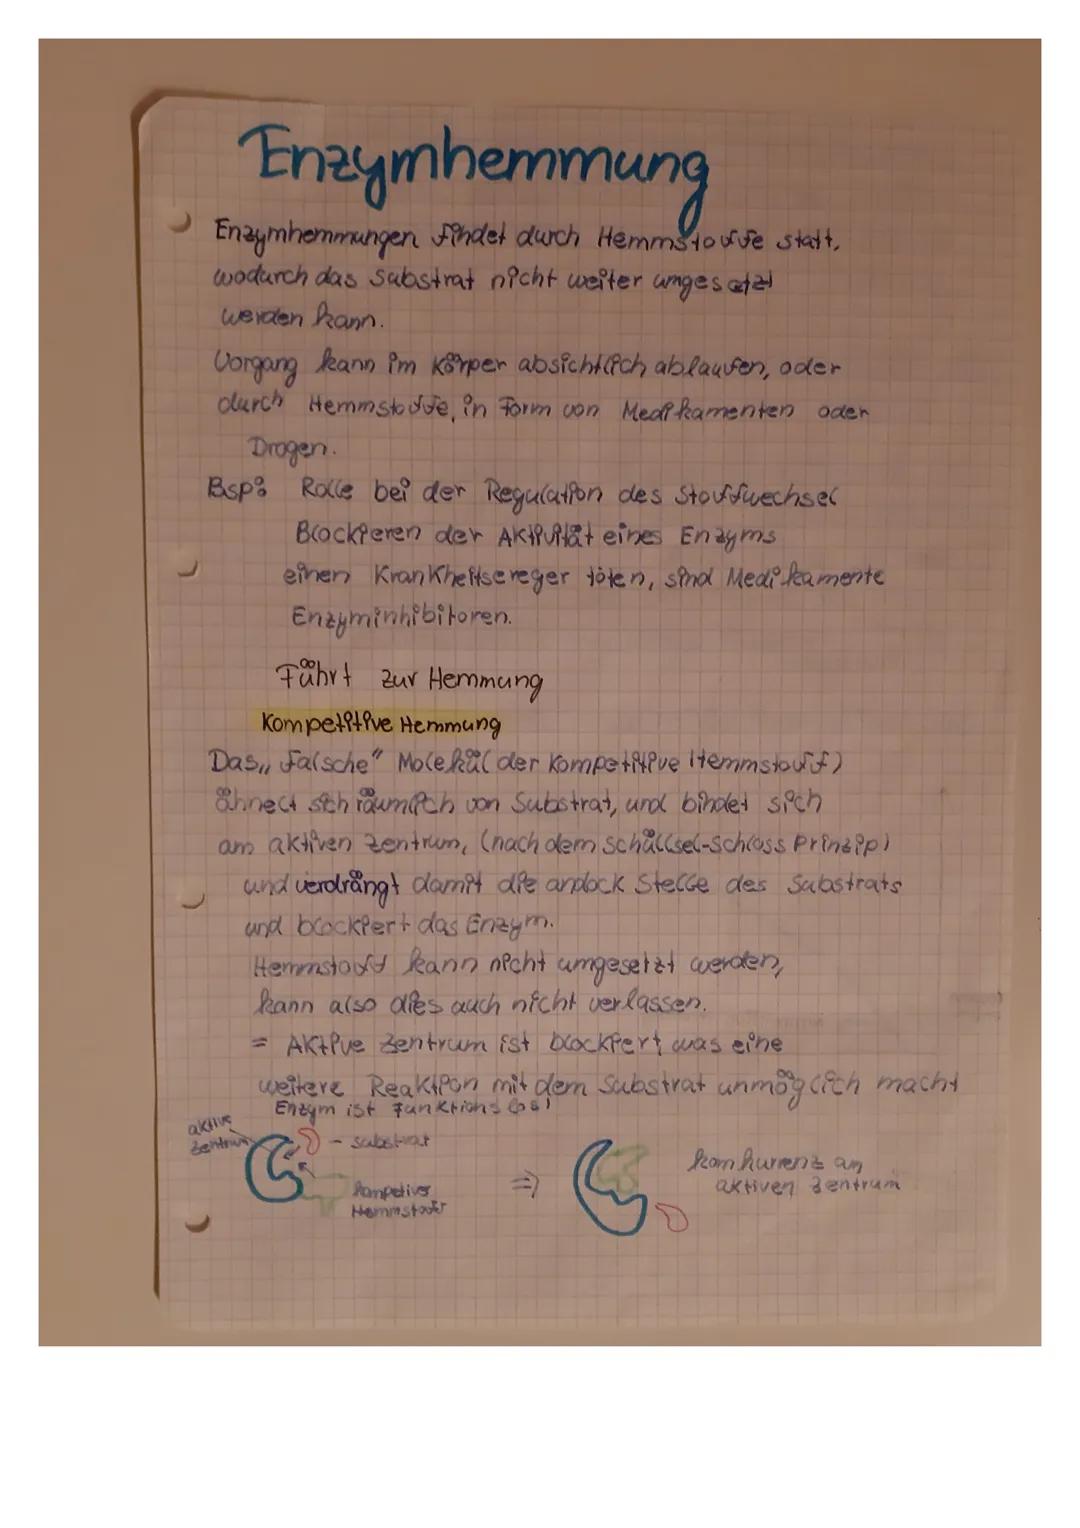 Enzymhemmung
Enzymhemmungen findet durch Hemmstoffe statt,
wodurch das Substrat nicht weiter umgesetzt
werden kann.
Vorgang kann im Körper absichtlich ablaufen, oder
durch Hemmstoffe, in Form von Medikamenten oder
Drogen.
Bsp: Rolle bei der Regulation des Stoffwechsel
Blockieren der Aktivität eines Enzyms
einen Krankheitsereger töten, sind Medikamente
Enzyminhibitoren.
Führt zur Hemmung
Kompetitive Hemmung
Das „falsche" Molekül (der Kompetitive Hemmstoff)
ähnelt sich räumlich von Substrat, und bindet sich
am aktiven Zentrum, (nach dem schüllsel-schloss Prinzip)
und verdrängt damit die andock Stelle des Substrats
und blockiert das Enzym.
Hemmstoff kann nicht umgesetzt werden,
kann also dies auch nicht verlassen.
= Aktive Zentrum ist blockiert, was eine
weitere Reaktion mit dem Substrat unmöglich macht
Enzym ist Funktionslos!
aktive
Zentrum
- substrat
kompetiver
Hemmstoff
⇒
konkurrenz an
aktiven Zentrum